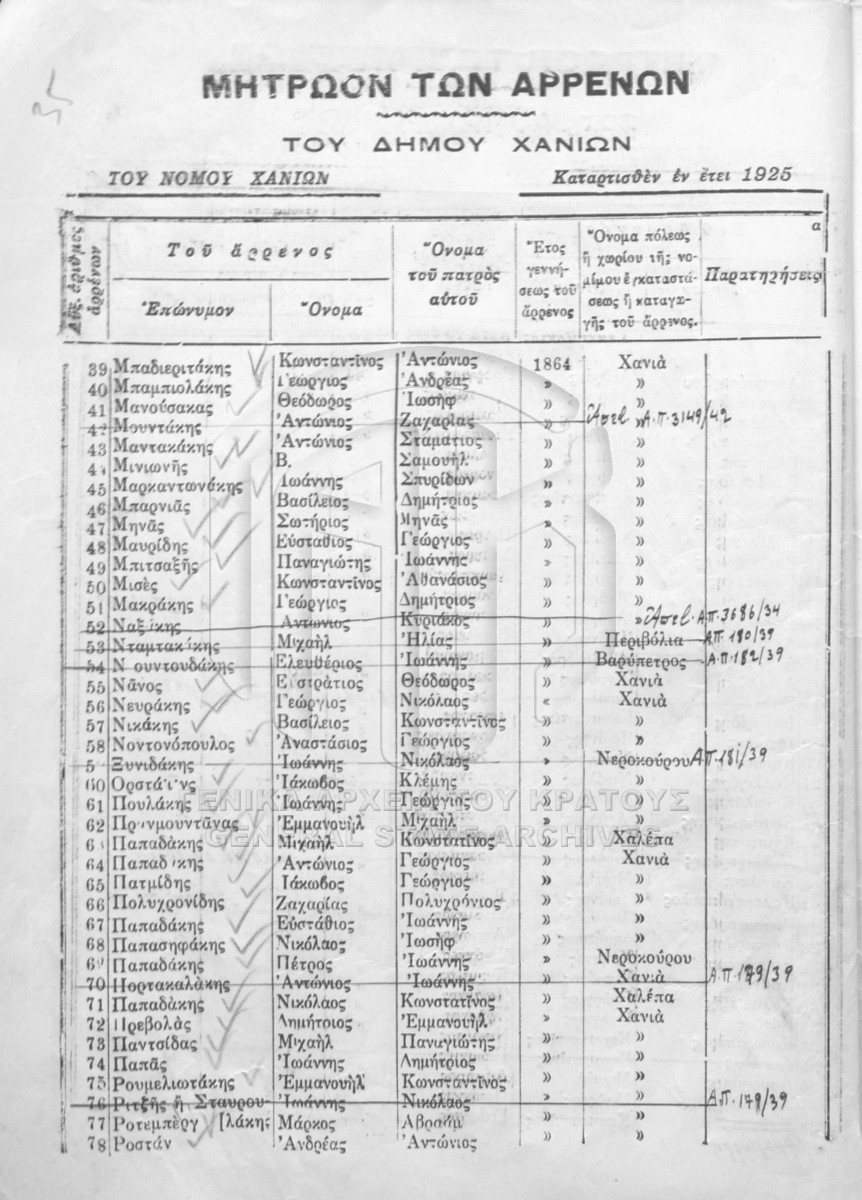 ΜΗΤΡΩΟΝ ΤΩΝ ΑΡΡΕΝΩΝ
ΤΟΥ ΔΗΜΟΥ ΧΑΝΙΩΝ
ΤΟΥ ΝΟΜΟΥ ΧΑΝΙΩΝ Καταρτισθὲν ἐν ἔτει 1925
Αὔξ. ἀριθμὸς ἀρρένων Τοῦ ἄρρενος Ἐπώνυμον Ὄνομα Ὄνομα τοῦ πατρὸς αὐτοῦ Ἔτος γεννήσεως τοῦ ἄρρενος Ὄνομα πόλεως ἢ χωρίου τῆς νομίμου ἐγκαταστάσεως ἢ καταγωγῆς τοῦ ἄρρενος. Παρατηρήσεις α
39 Μπαδιεριτάκης Κωνσταντῖνος Ἀντώνιος 1864 Χανιὰ
40 Μπαμπιολάκης Γεώργιος Ἀνδρέας » »
41 Μανούσακας Θεόδωρος Ἰωσὴφ » »
42 Μουντάκης Ἀντώνιος Ζαχαρίας » » Α.Π. 3149/42
43 Μαντακάκης Ἀντώνιος Σταμάτιος » »
44 Μινιωνῆς Β. Σαμουὴλ » »
45 Μαρκαντωνάκης Ἰωάννης Σπυρίδων » »
46 Μπαρνιᾶς Βασίλειος Δημήτριος » »
47 Μηνᾶς Σωτήριος Μηνᾶς » »
48 Μαυρίδης Εὐστάθιος Γεώργιος » »
49 Μπιτσαξῆς Παναγιώτης Ἰωάννης » »
50 Μισὲς Κωνσταντῖνος Ἀθανάσιος » »
51 Μακράκης Γεώργιος Δημήτριος » »
52 Ναξάκης Ἀντώνιος Κυριάκος » Α.Π. 3686/34
53 Νταμτακάκης Μιχαὴλ Ἠλίας » Περιβόλια Α.Π. 180/39
54 Ν ουντουδάκης Ἐλευθέριος Ἰωάννης » Βαρύπετρος Α.Π. 182/39
55 Νᾶνος Εὐστράτιος Θεόδωρος » Χανιὰ
56 Νευράκης Γεώργιος Νικόλαος « Χανιὰ
57 Νικάκης Βασίλειος Κωνσταντῖνος » »
58 Νοντονόπουλος Ἀναστάσιος Γεώργιος » »
5 Ξυνιδάκης Ἰωάννης Νικόλαος » Νεροκούρου Α.Π. 181/39
60 Ἰάκωβος Κλέμης » »
61 Πουλάκης Ἰωάννης Γεώργιος » »
62 Ἐμμανουὴλ Μιχαὴλ » »
6 Παπαδάκης Μιχαὴλ Κωνστατῖνος » Χαλέπα
64 Παπαδάκης Ἀντώνιος Γεώργιος » Χανιὰ
65 Πατμίδης Ἰάκωβος Γεώργιος » »
66 Πολυχρονίδης Ζαχαρίας Πολυχρόνιος » »
67 Παπαδάκης Εὐστάθιος Ἰωάννης » »
68 Παπασηφάκης Νικόλαος Ἰωσὴφ » »
69 Παπαδάκης Πέτρος Ἰωάννης » Νεροκούρου
70 Πορτακαλάκης Ἀντώνιος Ἰωάννης » Χανιὰ Α.Π. 179/39
71 Παπαδάκης Νικόλαος Κωνστατῖνος » Χαλέπα
72 Πρεβολὰς Δημήτριος Ἐμμανουὴλ » Χανιὰ
73 Παντσίδας Μιχαὴλ Παναγιώτης » »
74 Παπᾶς Ἰωάννης Δημήτριος » »
75 Ρουμελιωτάκης Ἐμμανουὴλ Κωνσταντῖνος » »
76 Ριτζῆς ἢ Σταυρου- Ἰωάννης Νικόλαος » » Α.Π. 179/39
77 Ροτεμπὲργ [λάκης Μάρκος Ἀβραὰμ » »
78 Ροστάν Ἀνδρέας Ἀντώνιος » »
ΓΕΝΙΚΑ ΑΡΧΕΙΑ ΤΟΥ ΚΡΑΤΟΥΣ
GENERAL STATE ARCHIVES